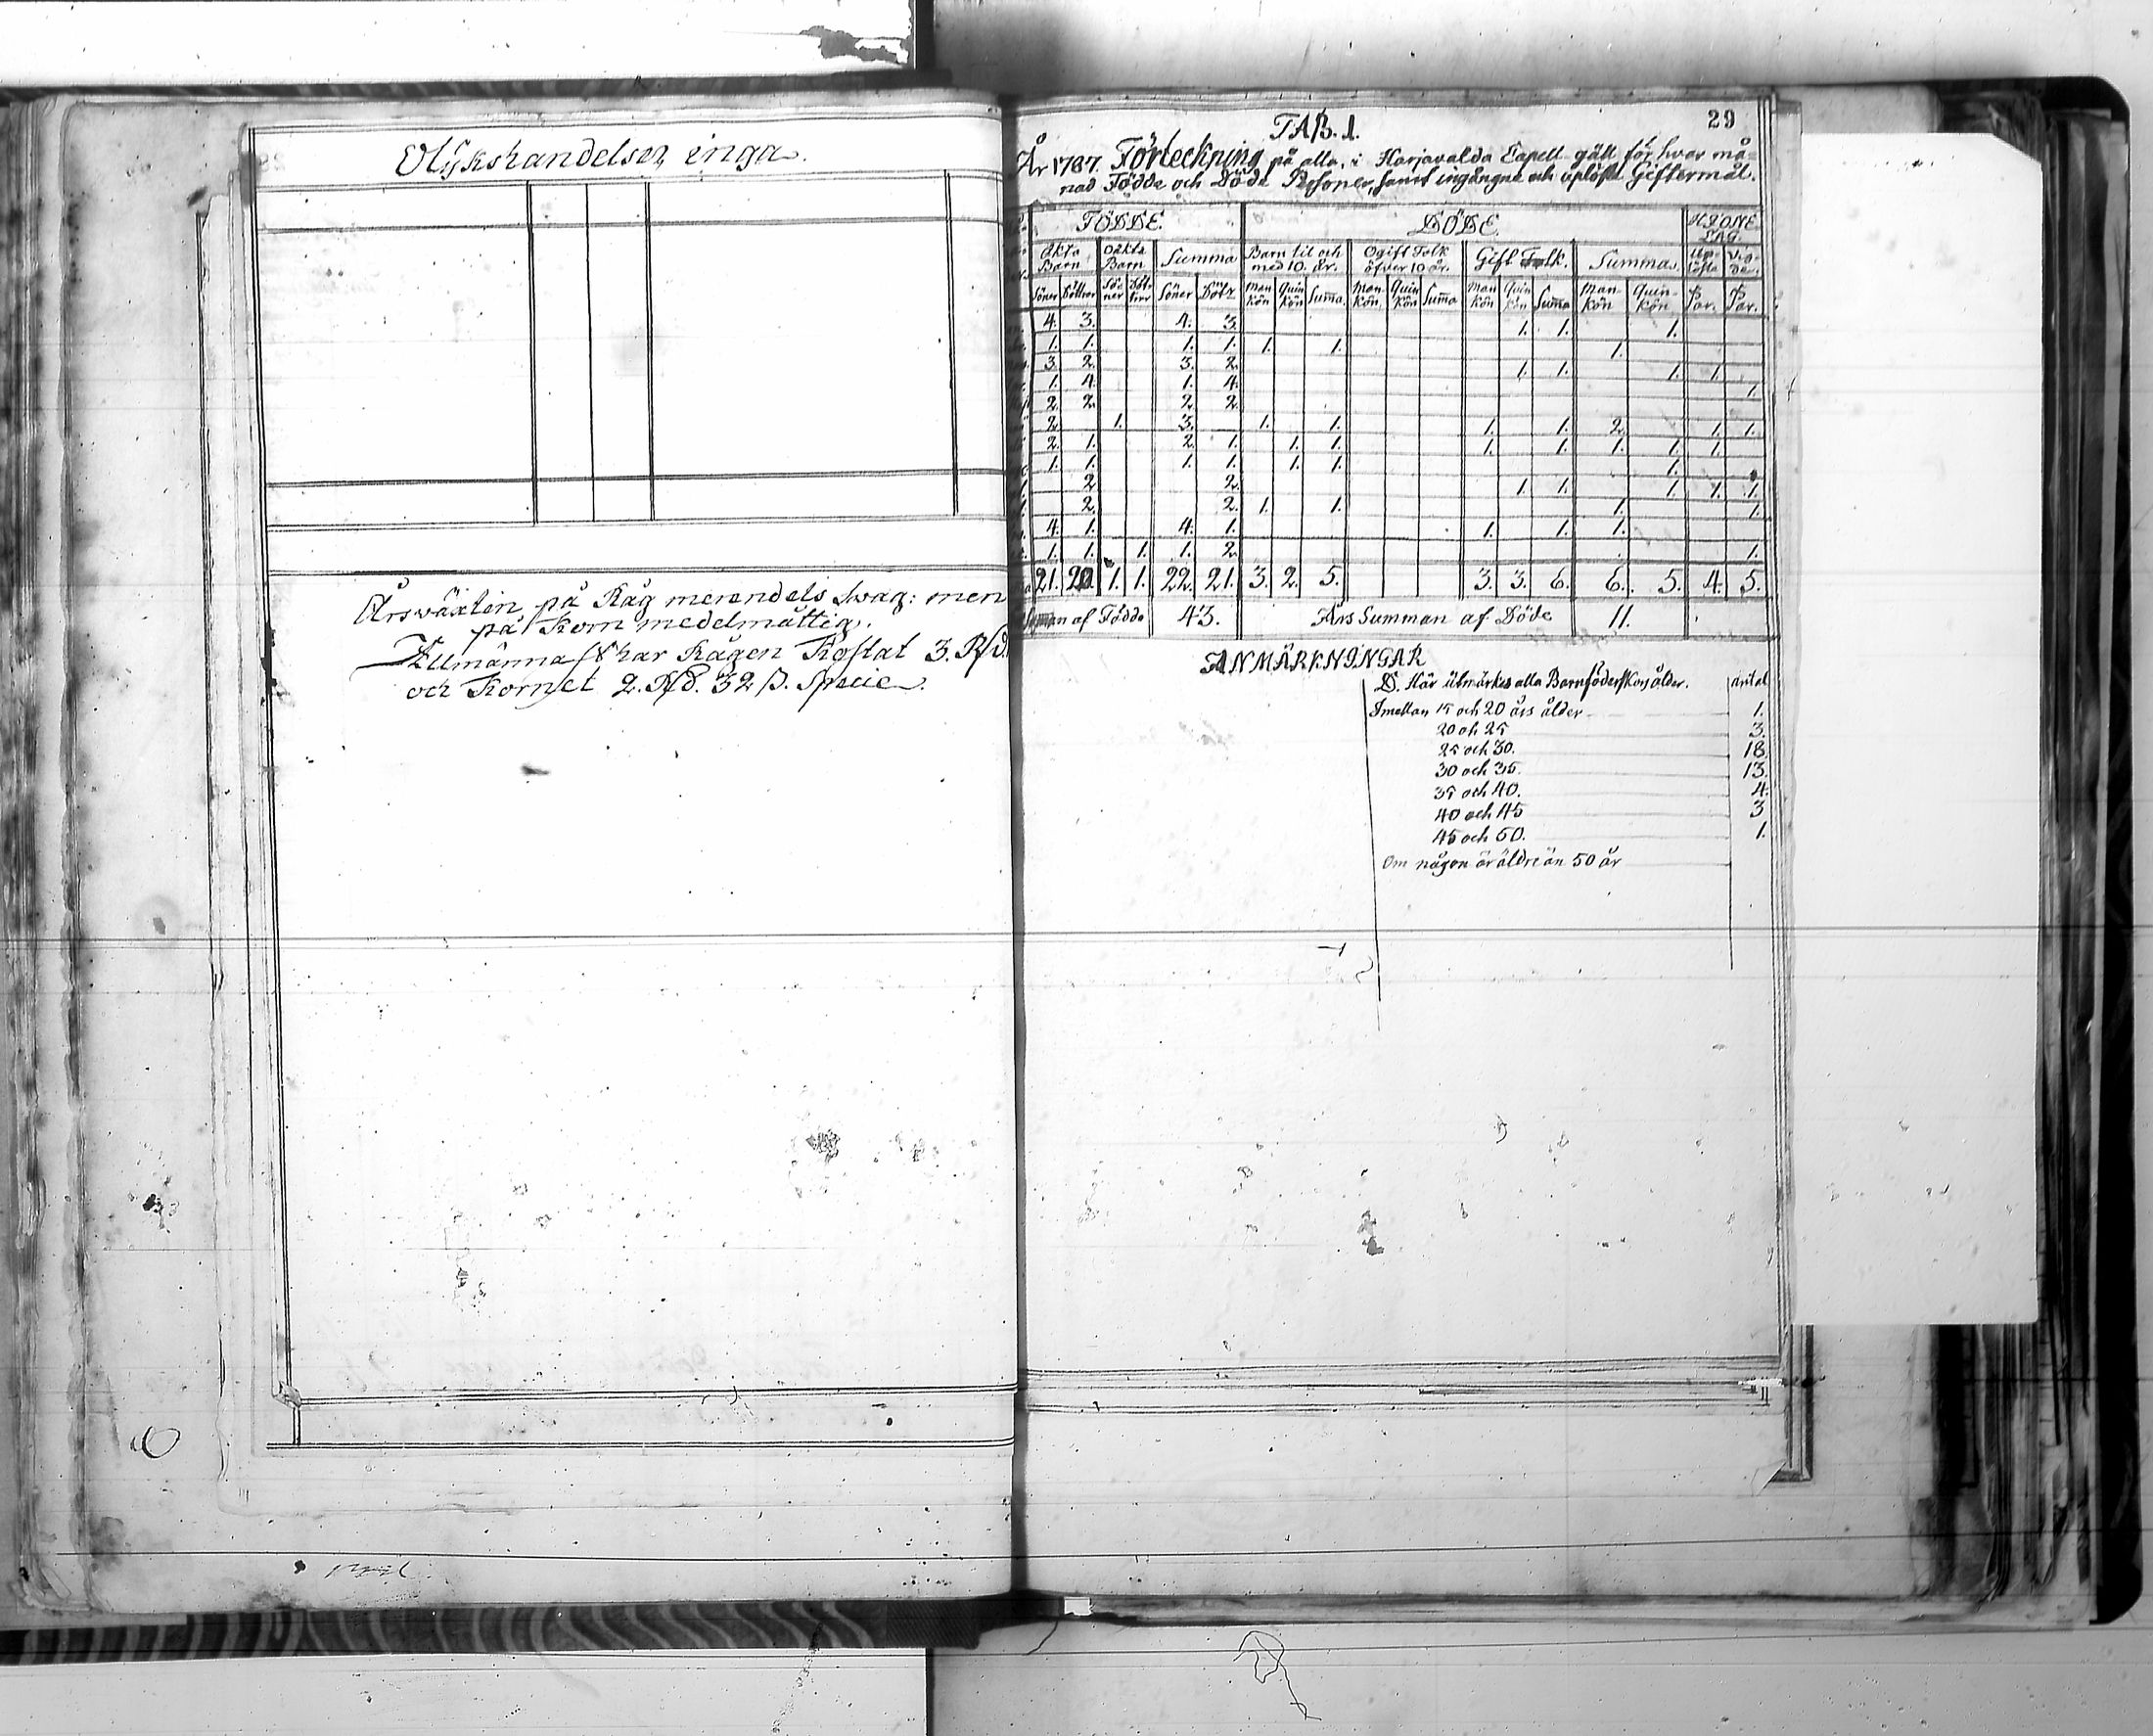 Olykshandelser inga.
Årswäxten på Råg merendels swag: men
på Korn medelmåttig.
Allmänna har Rågen Kostat 3. Rd.
och Kornet 2. Rd. 32 ß. Specie.
29
TAB. 1.
År 1787. Förteckning på alla, i Harjavalda Capell gäll för hvar må-
nad Födde och Döde Personer, samt ingångne och uplöste Giftermål.
FÖDDE. DÖDE. HJONE
LAG.
äkta Barn oäkta Barn Summa Barn til och med 10. år. Ogift Folk öfver 10 år. Gift Folk. Summa. Up-
löste Vig-
de.
Söner Döttrar Sö-
ner Döt-
trar Söner Döttr Man kön Quin kön Summa. Man- kön. Quin kön Summa Man kön Quin kön Summa Man- kön Quin- kön. Par. Par.
4. 3. 4. 3. 1. 1. 1.
1. 1. 1. 1. 1. 1. 1.
3. 2. 3. 2. 1. 1. 1. 1.
1. 4. 1. 4. 1.
2. 2. 2. 2.
2. 1. 3. 1. 1. 1. 1. 2. 1. 1.
2. 1. 2. 1. 1. 1. 1. 1. 1. 1. 1.
1. 1. 1. 1. 1. 1. 1.
2. 2. 1. 1. 1. 1. 1.
2. 2. 1. 1. 1. 1.
4. 1. 4. 1. 1. 1. 1.
1. 1. 1. 1. 2. 1.
21. 20. 1. 1. 22. 21. 3. 2. 5. 3. 3. 6. 6. 5. 4. 5.
Summan af Födde 43. Års Summan af Döde 11.
ANMÄRKNINGAR
D. Här utmärkes alla Barnföderskors ålder. Antal
Imellan 15 och 20 års ålder 1.
20 och 25 3.
25 och 30. 18
30 och 35. 13.
35 och 40. 4.
40 och 45 3
45 och 50. 1.
Om någon är äldre än 50 år